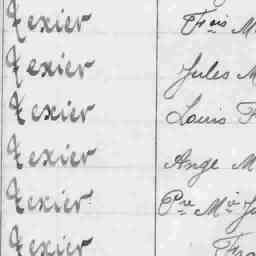 Texier Fcois M
Texier Jules M
Texier Louis F
Texier Ange M
Texier Pre Mie J
Texier Fra